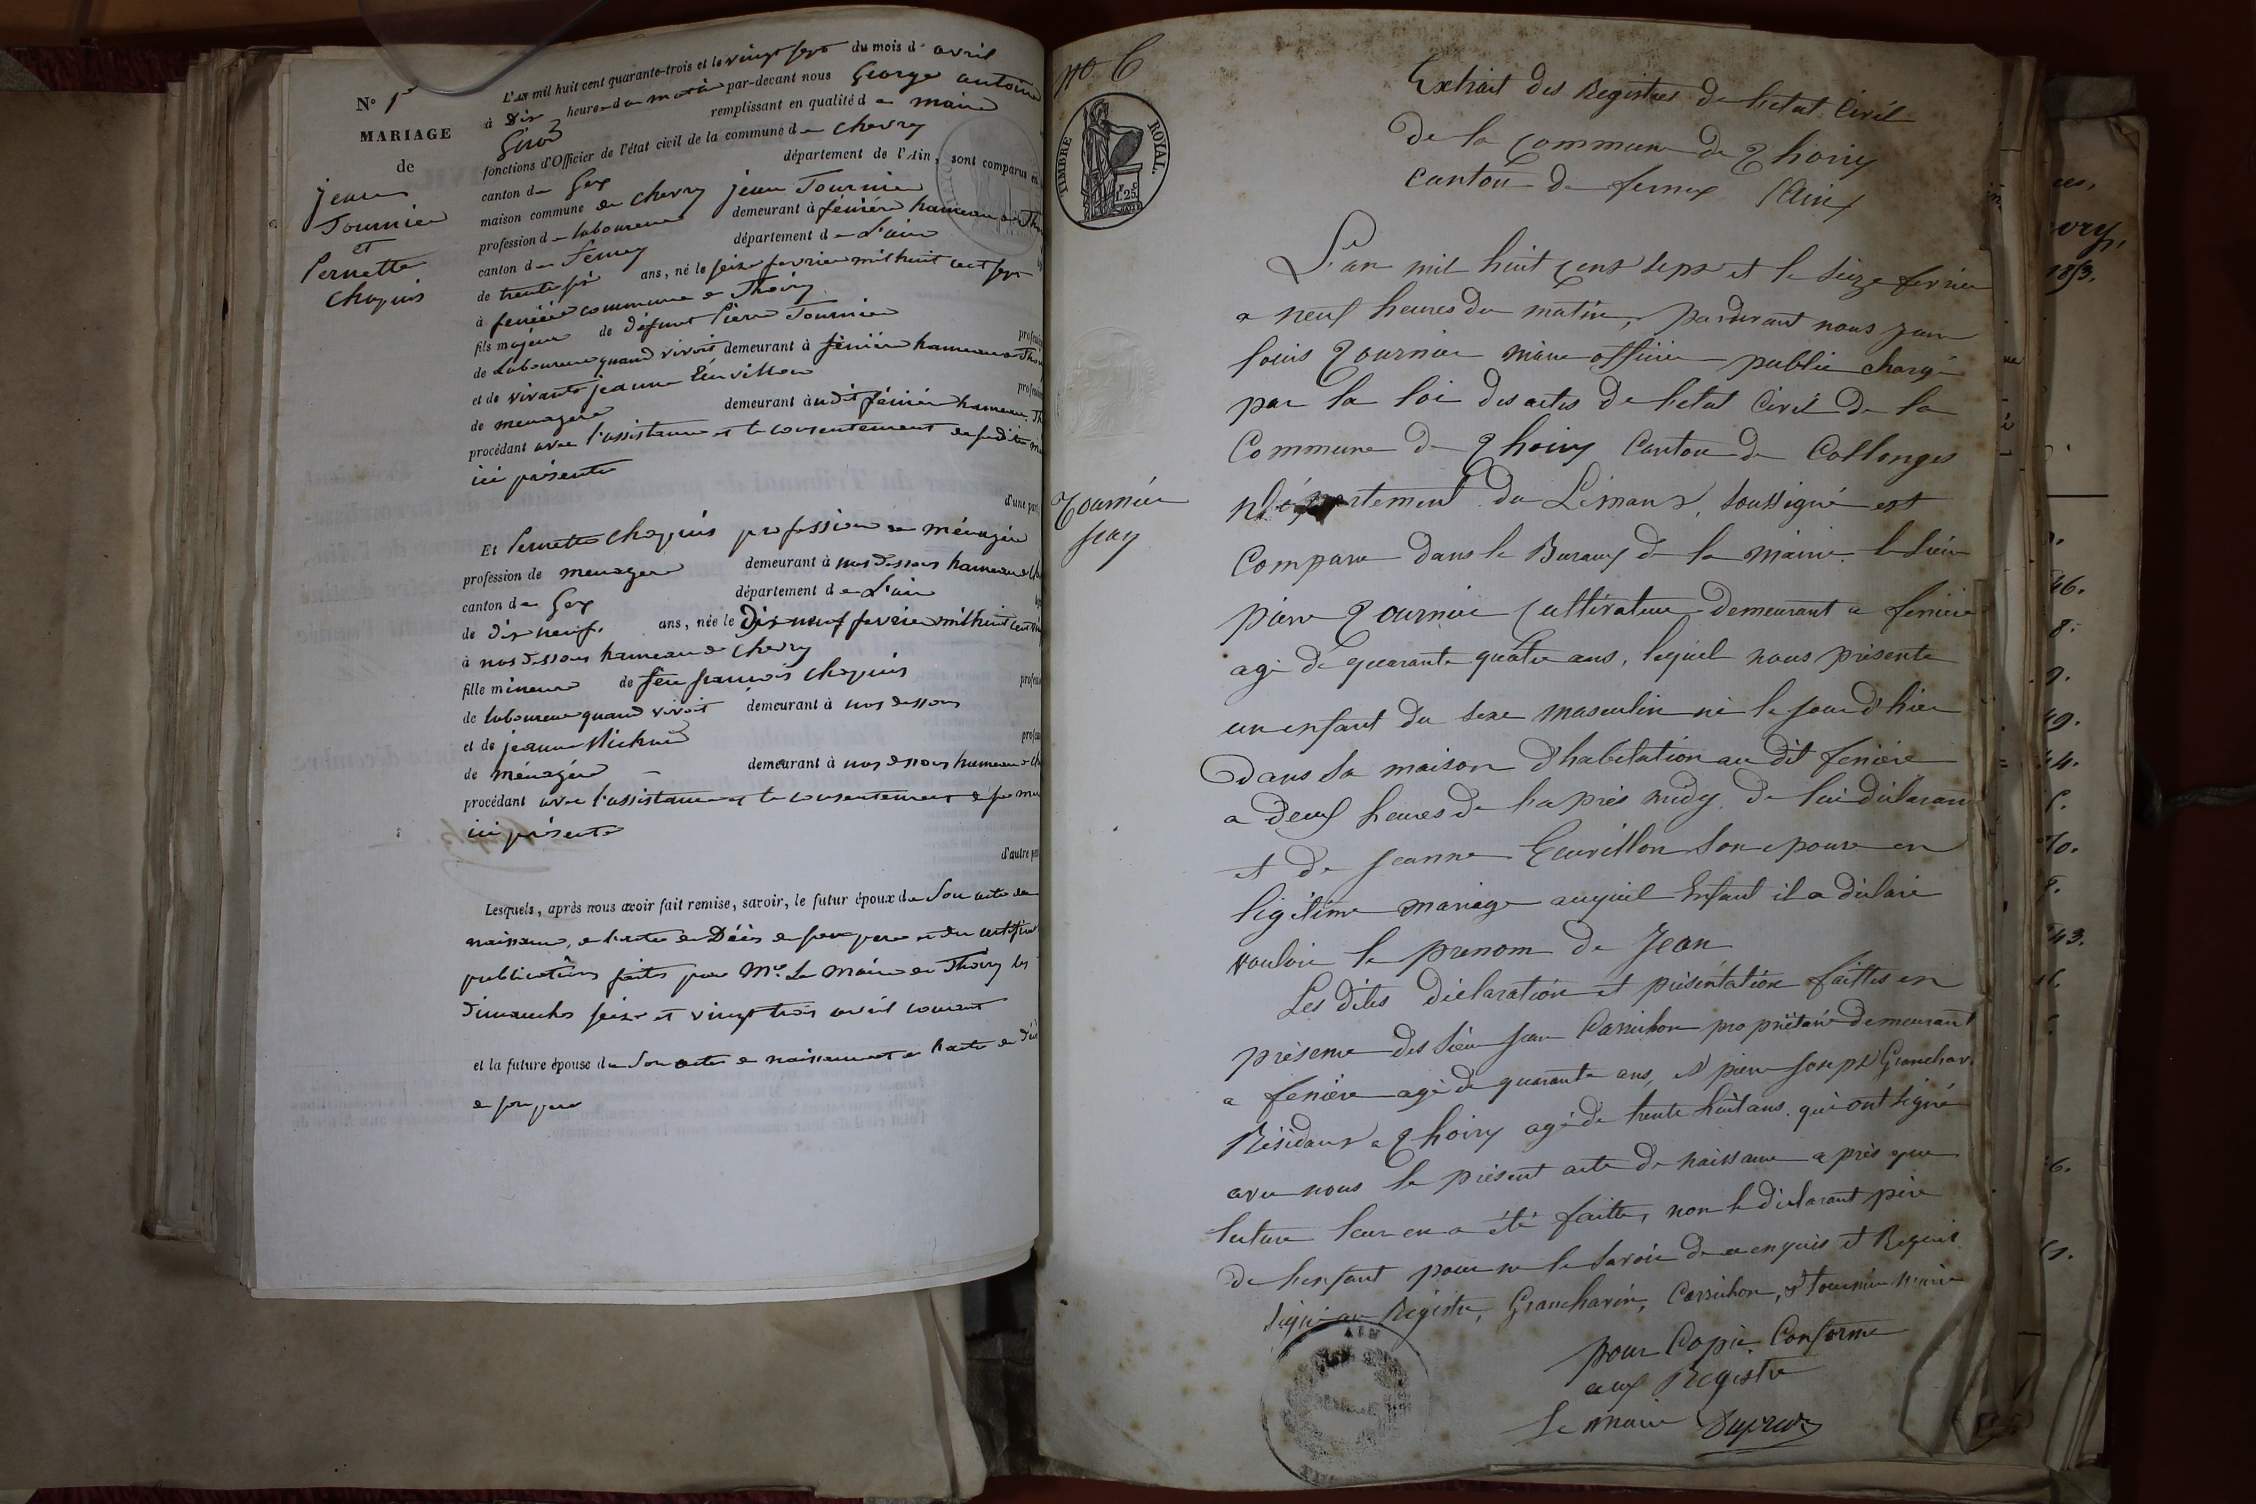 N° 5
MARIAGE
de
jean
Tournier
et
Pernette
Chapuis
L'AN mil huit cent quarante-trois et le vingt sept du mois d' avril
à Dix heures du matin par-devant nous George antoine
Girod remplissant en qualité de maire
fonctions d'Officier de l'état civil de la commune de chevry
canton de Gex département de l'Ain, sont comparus en
maison commune de chevry jean Tournier
profession de laboureur demeurant à fénière hameau de Tho
canton de Ferney département de L'ain
de trente six ans, né le seize fevrier mil huit cent sept
à fenière commune de Thoiry
fils majeur de défunt Pierre Tournier profession
de laboureur quand vivoit demeurant à fénière hameau de Thoi
et de vivante jeanne Ecuvillon profession
de menagere demeurant audit fénière hameau Th
procédant avec l'assistance et le consentement de sadite m
ici présente
d'une part,
Et Pernette Chapuis profession de ménagère
profession de menagere demeurant à nas dessous hameau de Ch
canton de Gex département de L'ain
de dix neuf ans, née le Dix neuf fevrier mil huit cent vin
à nas dessous hameau de Chevry
fille mineure de feu françois Chapuis profess
de laboureur quand vivoit demeurant à nas dessous
et de jeanne profess
de ménagère demeurant à nas dessous hameau de Ch
procédant avec l'assistance et le consentement de sa mer
ici présente
d'autre part
Lesquels, après nous avoir fait remise, savoir, le futur époux de Son acte de
naissance, de l'acte de Décès de son pere et du certificat
publications faites par Mr. Le Maire de Thoiry les
dimanches seize et vingt trois avril courant
et la future épouse de Son acte de naissance et de l'acte de déc
de son pere
No 6
TIMBRE ROYAL.
Extrait des Registres de l'etat Civil
de la Commune de Thoiry
Canton de ferney (Ain)
L'an mil huit Cent sept et le Seize fevrier
a neuf heures du matin, pardevant nous jean
louis Tournier maire officier public chargé
par la loi des actes de l'etat Civil de la
Commune de Thoiry Canton de Collonges
Département du Léman, soussigné est
Tournier
jean
Comparu dans le Bureau de la mairie le Sieur
pierre Tournier Cultivateur demeurant a feniere
agé de quarante quatre ans, lequel nous présente
un enfant du sexe masculin né le jour d'hier
dans sa maison d'habitation au dit feniere
a deux heures de l'après midy de lui déclarant
et de jeanne Ecuvillon son epouse en
légitime mariage auquel Enfant il a déclaré
vouloir le prenom de Jean
Les dites déclaration et présentation faittes en
présence des Sieur jean Carrichon propriétaire demeurant
a feniere agé de quarante ans, et pierre joseph Grancharin
Résidant a Thoiry agé de trente huit ans qui ont signé
avec nous le présent acte de naissance après que
lecture leur en a été faitte, non le déclarant père
de l'enfant pour ne le savoir de ce enquis et Requis
signé au Régistre, Grancharin, Carrichon, et tournier maire
pour Copie Conforme
aux Registre
Le maire
AIN